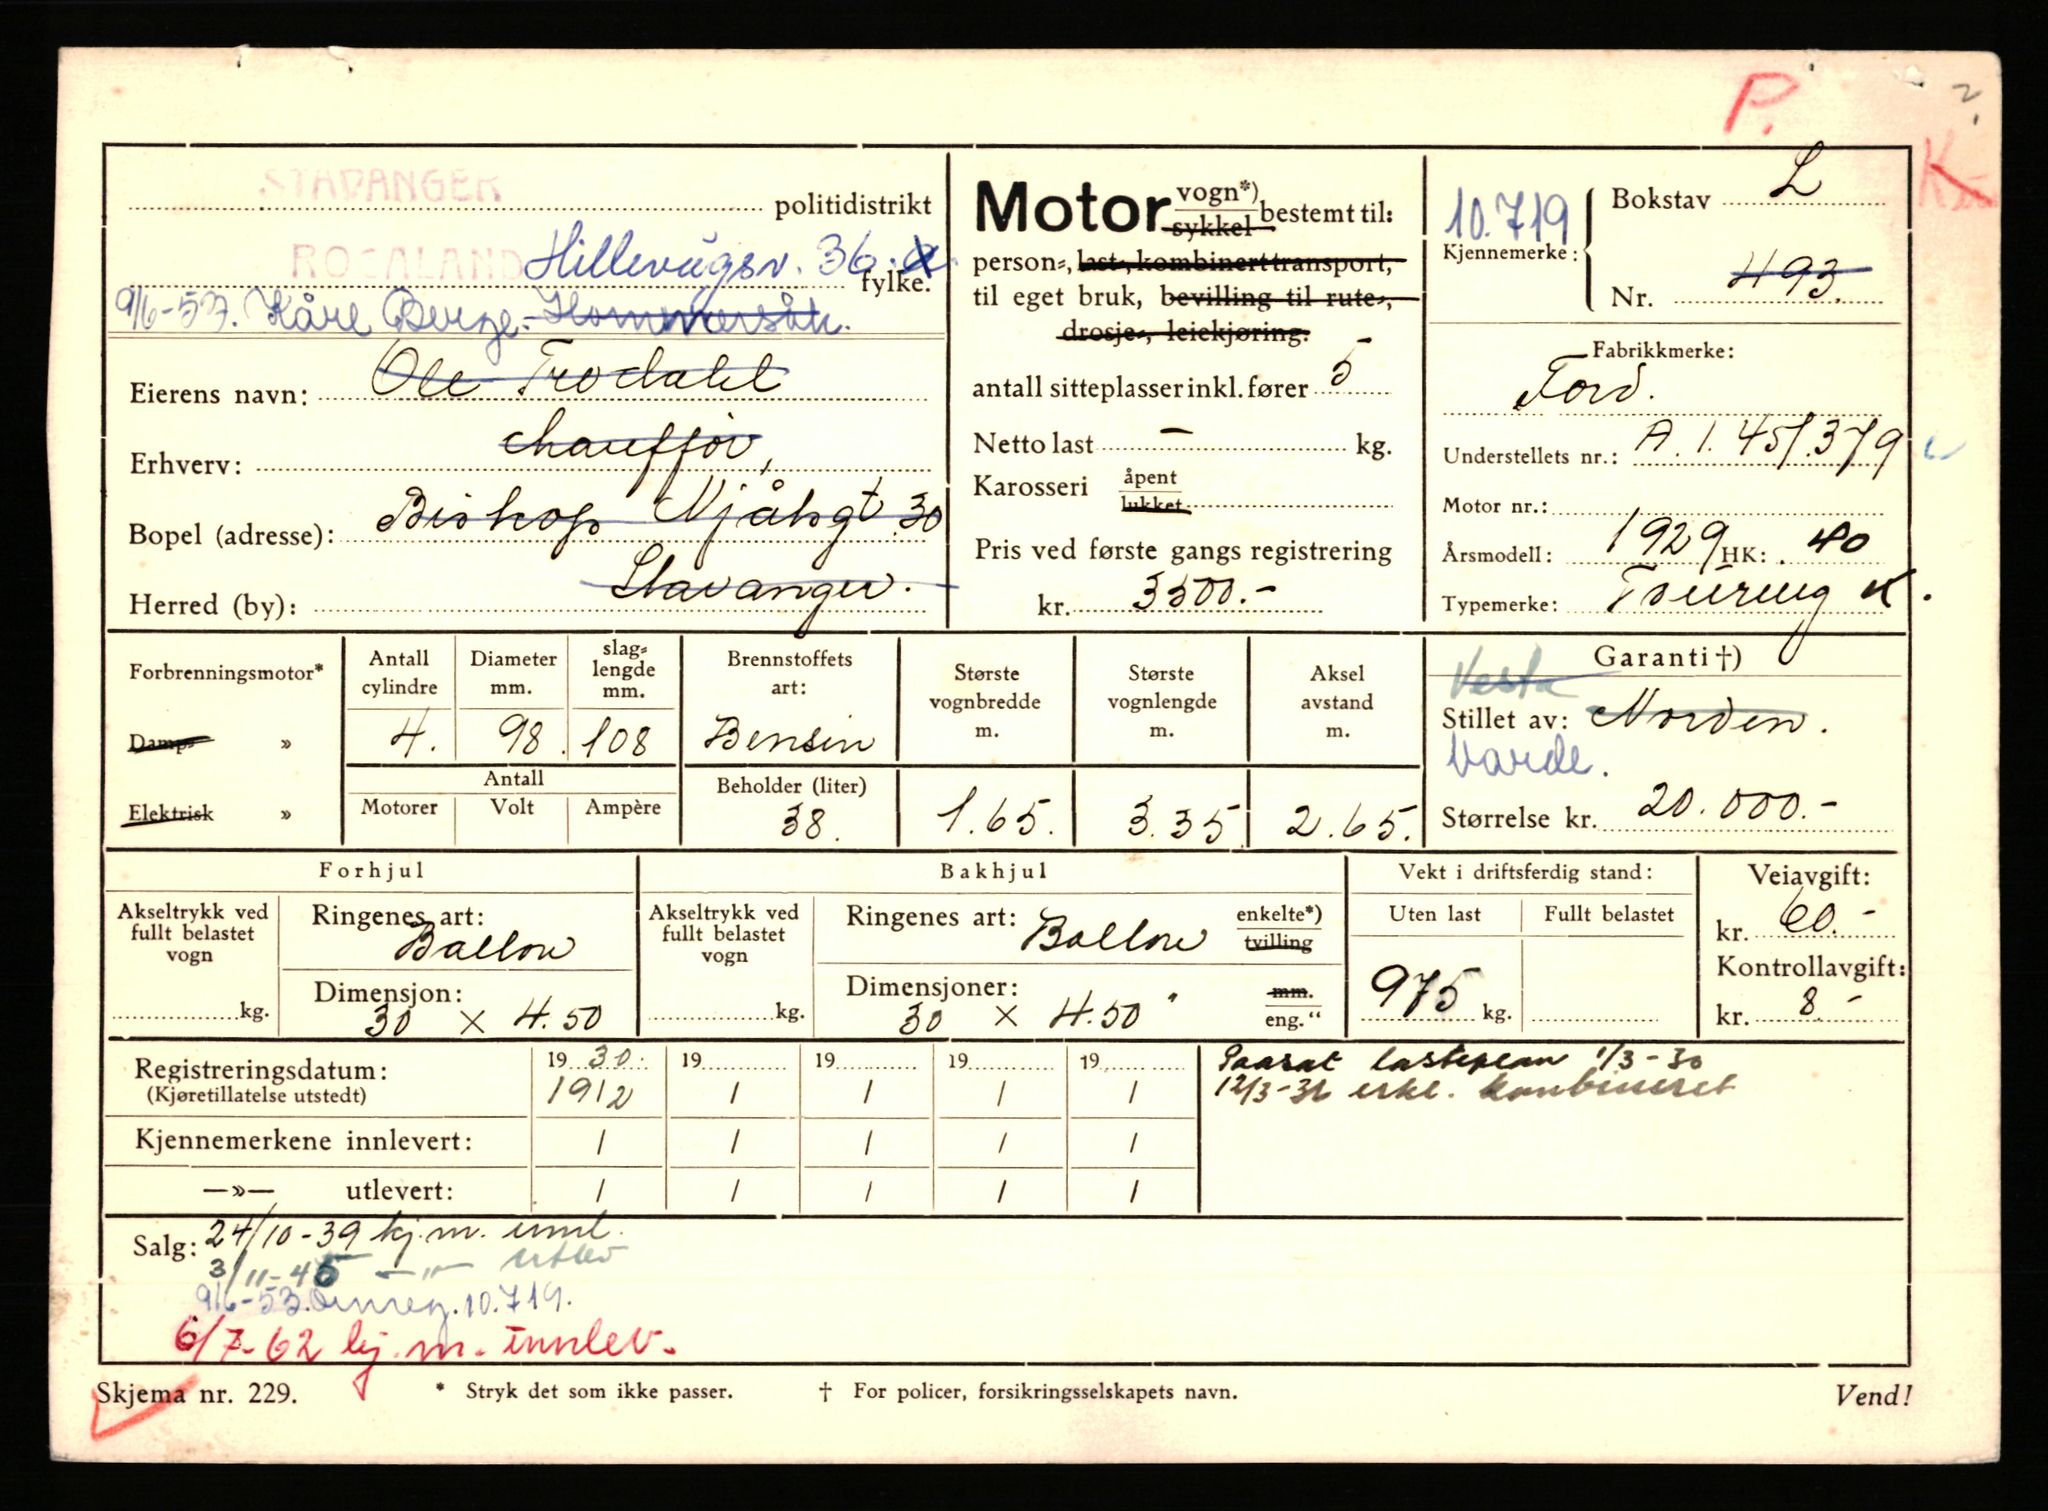 P.
2.
K
STAVANGER
politidistrikt
ROGALAND Hillevågsv. 36.a
fylke.
9/6-53. Kåre Berge. Hommersåk.
Eierens navn: Ole Trodahl
Erhverv: chauffør,
Bopel (adresse): Biskop Njålsgt 30
Herred (by): Stavanger.
Motor vogn*) sykkel bestemt til:
person-, last-, kombinert transport,
til eget bruk, bevilling til rute-,
drosje-, leiekjøring.
antall sitteplasser inkl. fører 5
Netto last — kg.
Karosseri åpent lukket
Pris ved første gangs registrering
kr. 3300.-
10.719
Kjennemerke:
Bokstav L
Nr. 493.
Fabrikkmerke:
Ford.
Understellets nr.: A.1.451.379
Motor nr.:
Årsmodell: 1929 HK: 40
Typemerke: Touring
Forbrenningsmotor*
Damp- »
Elektrisk »
Antall cylindre
4.
Diameter mm.
98.
slag-
lengde
mm.
108
Antall
Motorer Volt Ampère
Brennstoffets
art:
Bensin
Beholder (liter)
38.
Største
vognbredde
m.
1.65.
Største
vognlengde
m.
3.35
Aksel
avstand
m.
2.65.
Garanti †)
Vesta
Stillet av: Norden.
Varde.
Størrelse kr. 20.000.-
Forhjul
Akseltrykk ved
fullt belastet
vogn
kg.
Ringenes art:
Ballon
Dimensjon:
30 × 4.50
Bakhjul
Akseltrykk ved
fullt belastet
vogn
kg.
Ringenes art: enkelte*)
Ballon tvilling
Dimensjoner: mm.
30 × 4.50 " eng.“
Vekt i driftsferdig stand:
Uten last Fullt belastet
975 kg.
Veiavgift:
kr. 60.-
Kontrollavgift:
kr. 8.-
Registreringsdatum: 19 30. 19 19 19 19
(Kjøretillatelse utstedt) 19/2 / / / /
Kjennemerkene innlevert: / / / / /
—»— utlevert: / / / / /
Paasat lasteplan 1/3-30
12/3-36 erkl. kombineret
Salg: 24/10-39 kj.m. innl.
3/11-45 —"— utlev
9/6-53. Omreg. 10.719.
6/7-62 kj.m. innlev.
Skjema nr. 229.
* Stryk det som ikke passer.
† For policer, forsikringsselskapets navn.
Vend!